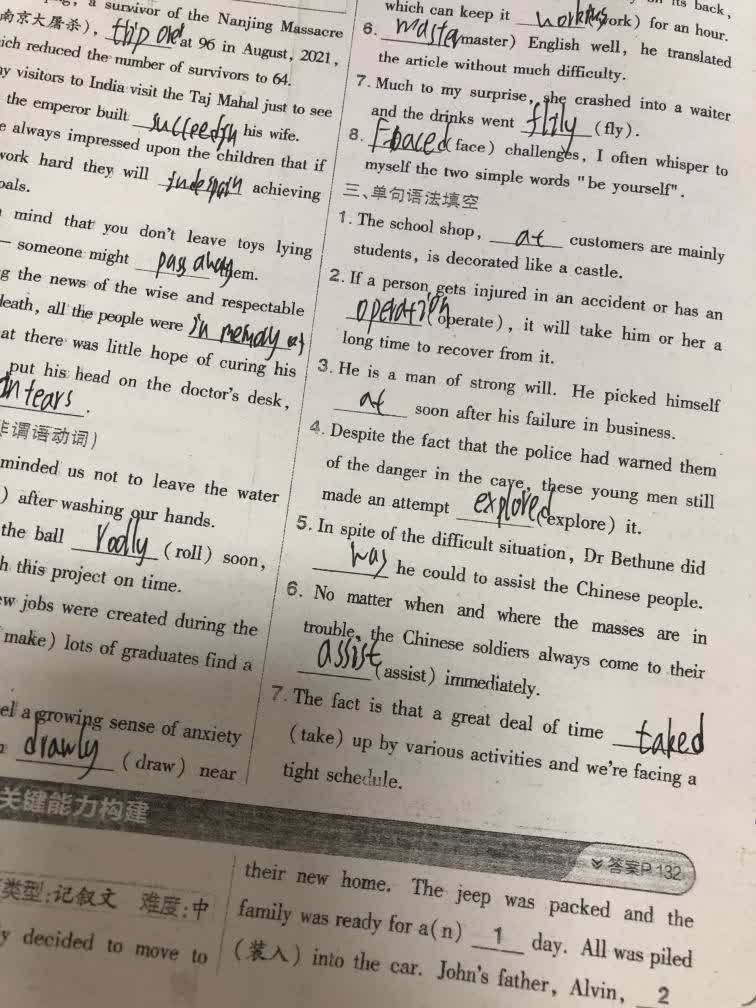 a survivor of the Nanjing Massacre
南京大屠杀), at 96 in August, 2021,
ich reduced the number of survivors to 64.
y visitors to India visit the Taj Mahal just to see
the emperor built his wife.
e always impressed upon the children that if
work hard they will achieving
oals.
mind that you don't leave toys lying
— someone might pass away em.
g the news of the wise and respectable
death, all the people were in
at there was little hope of curing his
put his head on the doctor's desk,
in tears.
非谓语动词)
minded us not to leave the water
) after washing our hands.
the ball (roll) soon,
h this project on time.
ew jobs were created during the
make) lots of graduates find a
el a growing sense of anxiety
drawly (draw) near
its back,
which can keep it (work) for an hour.
6. master (master) English well, he translated
the article without much difficulty.
7. Much to my surprise, she crashed into a waiter
and the drinks went (fly).
8. (face) challenges, I often whisper to
myself the two simple words "be yourself".
三、单句语法填空
1. The school shop, at customers are mainly
students, is decorated like a castle.
2. If a person gets injured in an accident or has an
(operate), it will take him or her a
long time to recover from it.
3. He is a man of strong will. He picked himself
at soon after his failure in business.
4. Despite the fact that the police had warned them
of the danger in the cave, these young men still
made an attempt explored (explore) it.
5. In spite of the difficult situation, Dr Bethune did
was he could to assist the Chinese people.
6. No matter when and where the masses are in
trouble, the Chinese soldiers always come to their
assist (assist) immediately.
7. The fact is that a great deal of time taked
(take) up by various activities and we're facing a
tight schedule.
关键能力构建
答案P 132
类型:记叙文 难度:中
y decided to move to
their new home. The jeep was packed and the
family was ready for a(n) 1 day. All was piled
(装入) into the car. John's father, Alvin, 2